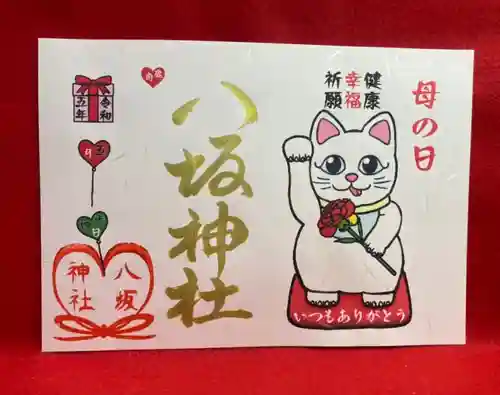 母の日
健康
幸福
祈願
いつもありがとう
八坂神社
奉拝
令和
五年
五月
日
八坂
神社